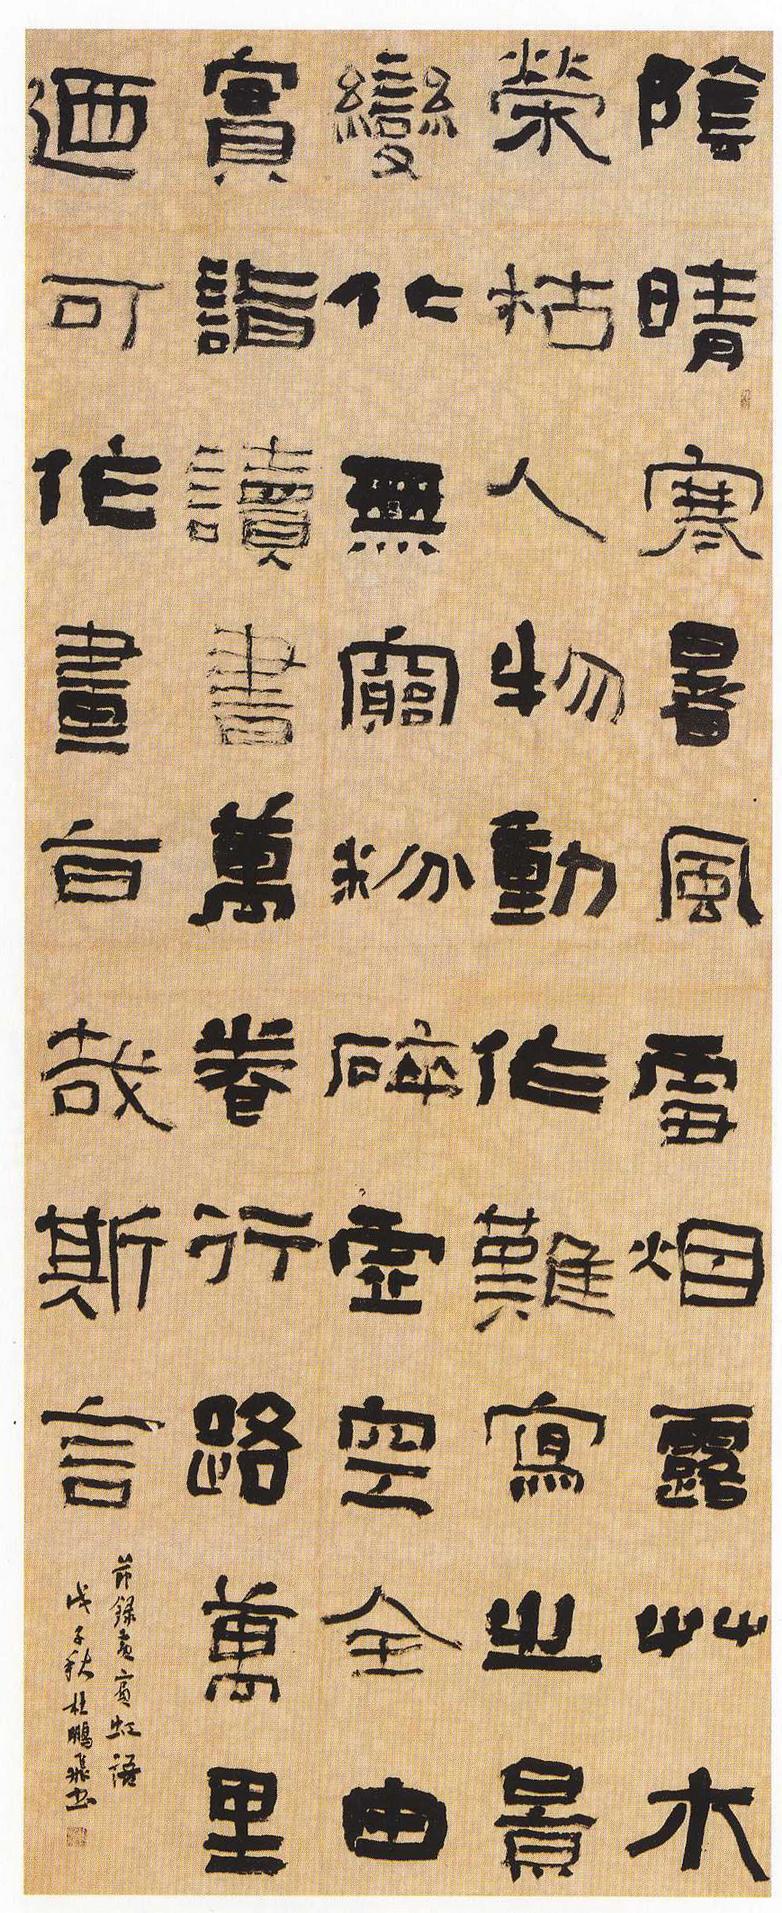 陰晴寒暑風雷烟露艸木
榮枯人物動作難寫之景
變化無窮粉碎虛空全由
實詣讀書萬卷行路萬里
迺可作畫旨哉斯言
節錄黃賓虹語
戊子秋杜鵬飛書